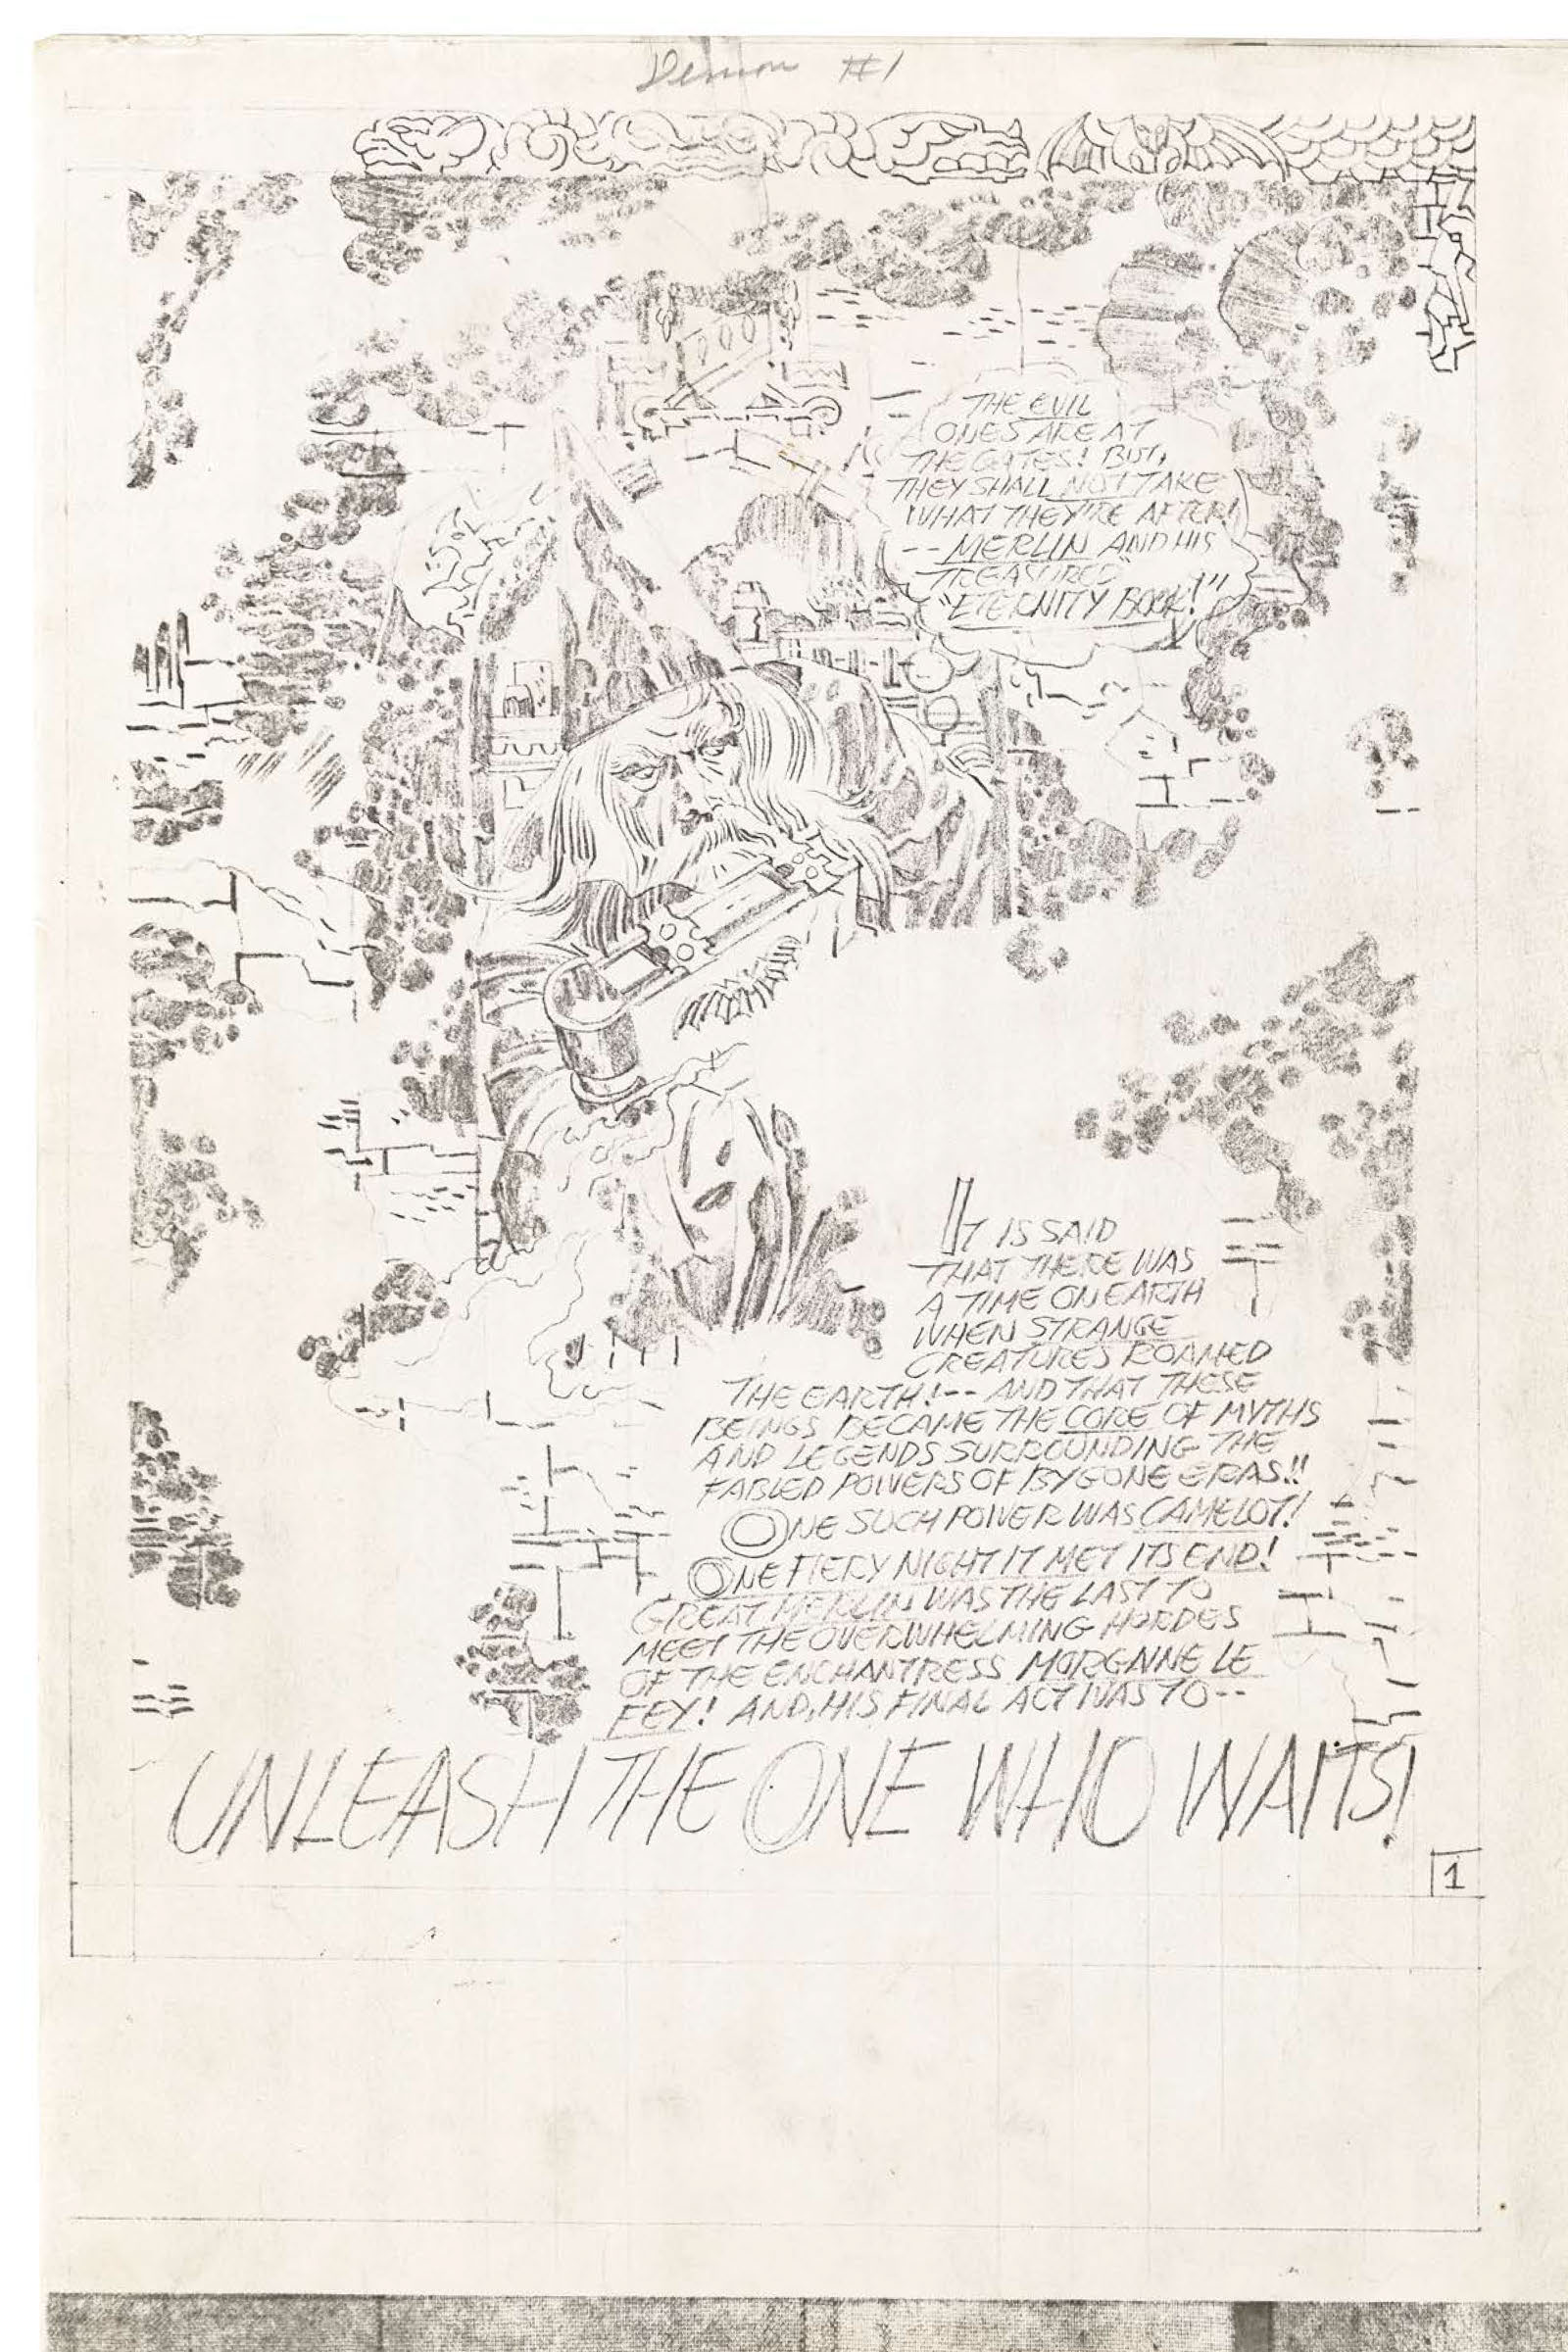 Demon #1
THE EVIL
ONES ARE AT
THE GATES! BUT,
THEY SHALL NOT TAKE
WHAT THEY'RE AFTER!
-- MERLIN AND HIS
TREASURED
"ETERNITY BOOK!"
IT IS SAID
THAT THERE WAS
A TIME ON EARTH
WHEN STRANGE
CREATURES ROAMED
THE EARTH!-- AND THAT THESE
BEINGS BECAME THE CORE OF MYTHS
AND LEGENDS SURROUNDING THE
FABLED POWERS OF BYGONE ERAS!!
ONE SUCH POWER WAS CAMELOT!
ONE FIERY NIGHT IT MET ITS END!
GREAT MERLIN WAS THE LAST TO
MEET THE OVERWHELMING HORDES
OF THE ENCHANTRESS MORGAINE LE
FEY! AND, HIS FINAL ACT WAS TO--
UNLEASH THE ONE WHO WAITS!
1